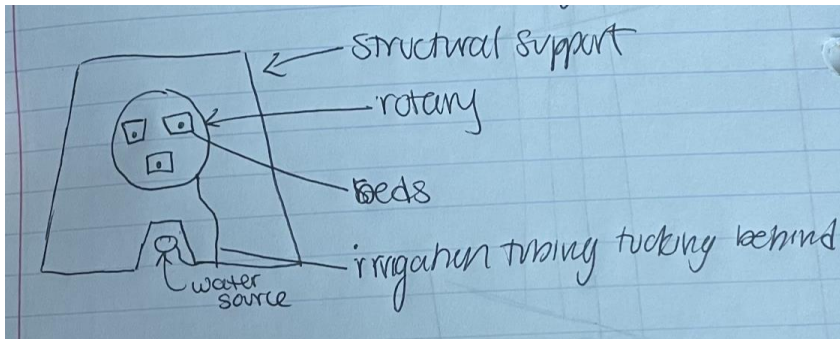 structural support
rotary
beds
irrigation tubing tucking behind
water
source